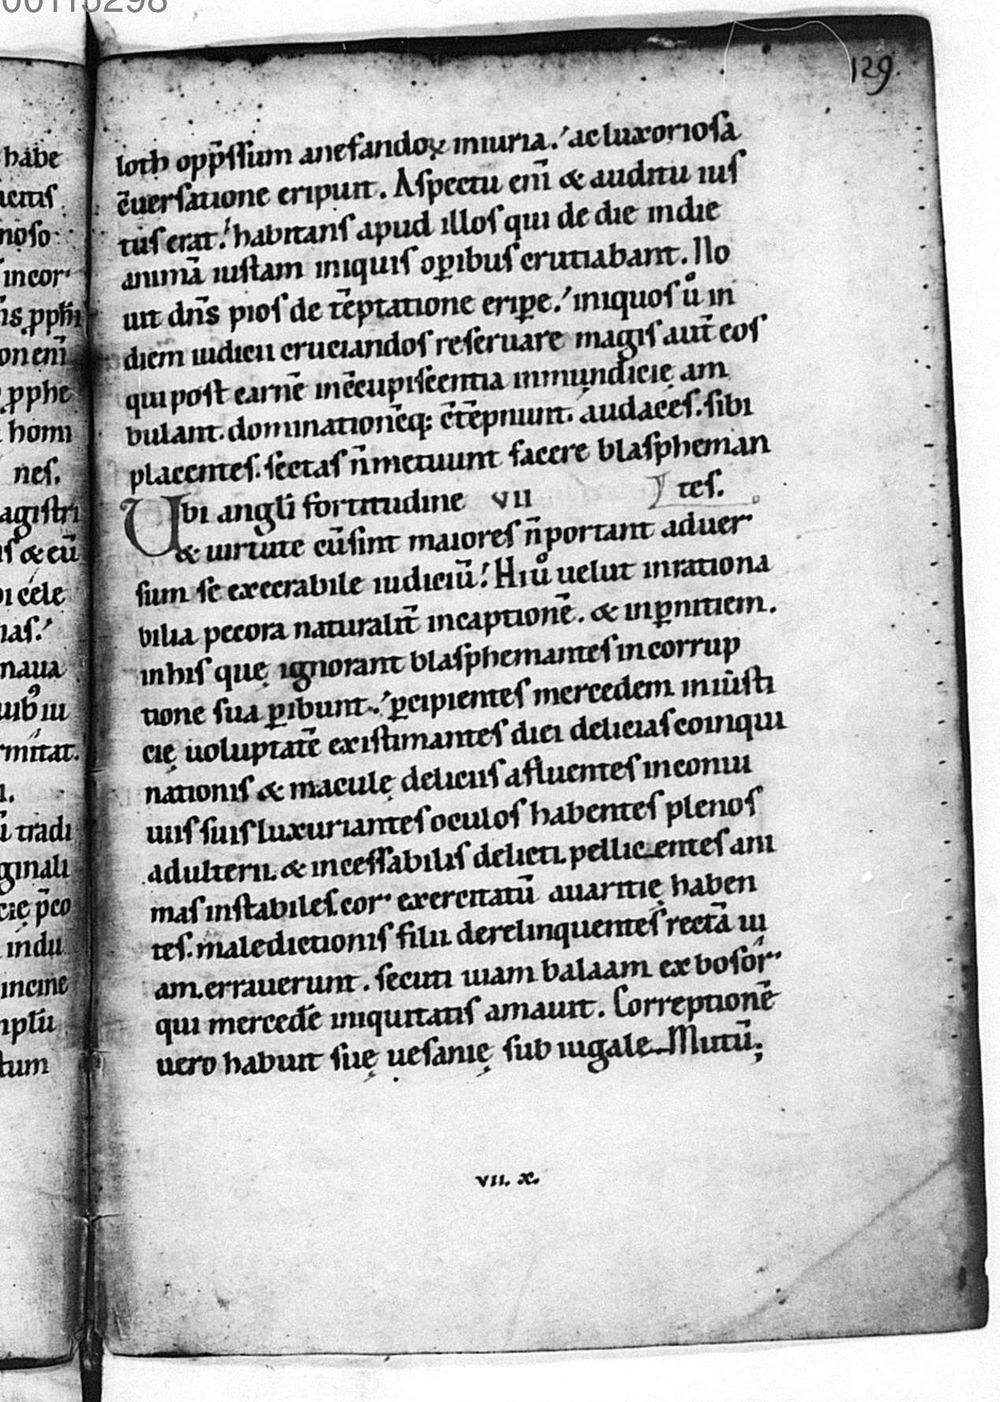 00115298
129
habe
uenis
noso
incor
n̄s ꝓph̄i
on enī
ꝓphe
homi
nes.
agistri
is & eū
bi cele
nas.
naua
uib; iu
rmitat.
ū tradi
ginali
cię p̄co
indu
incine
mplū
tum
loth opp̄ssum a nefandoꝝ iniuria. ac luxoriosa
c̄uersatione eripuit. Aspectu eni̅ & auditu ius
tus erat. habitans apud illos qui de die in die
animā iustam iniquis oꝑibus crutiabant. No
uit dn̄s pios de tēptatione eriꝑe. iniquos ů in
diem iudicii cruciandos reseruare magis aut̄ eos
qui post carnē in c̄cupiscentia inmundicię am
bulant. dominationēq; c̄tēpnunt. audaces. sibi
placentes. sectas n̄ metuunt facere blaspheman
Ubi angli̅ fortitudine vii tes.
& uirtute cū sint maiores n̄ portant aduer
sum se execrabile iudiciū. Hi ů uelut inrationa
bilia pecora naturalit̄ in captionē. & in ꝑnitiem.
in his quę ignorant blasphemantes in corrup
tione sua ꝑibunt. ꝑcipientes mercedem iniusti
cię uoluptatē existimantes diei delicias coinqui
nationis & maculę deliciis afluentes in conui
uiis suis luxuriantes oculos habentes plenos
adulterii. & incessabilis delicti. pellicentes ani
mas instabiles. cor exercitatū auaritię haben
tes. maledictionis filii derelinquentes rectā ui
am. errauerunt. secuti uiam balaam ex bosor
qui mercedē iniquitatis amauit. Correptionē
uero habuit suę uesanię sub iugale. Mutū;
vii. x.